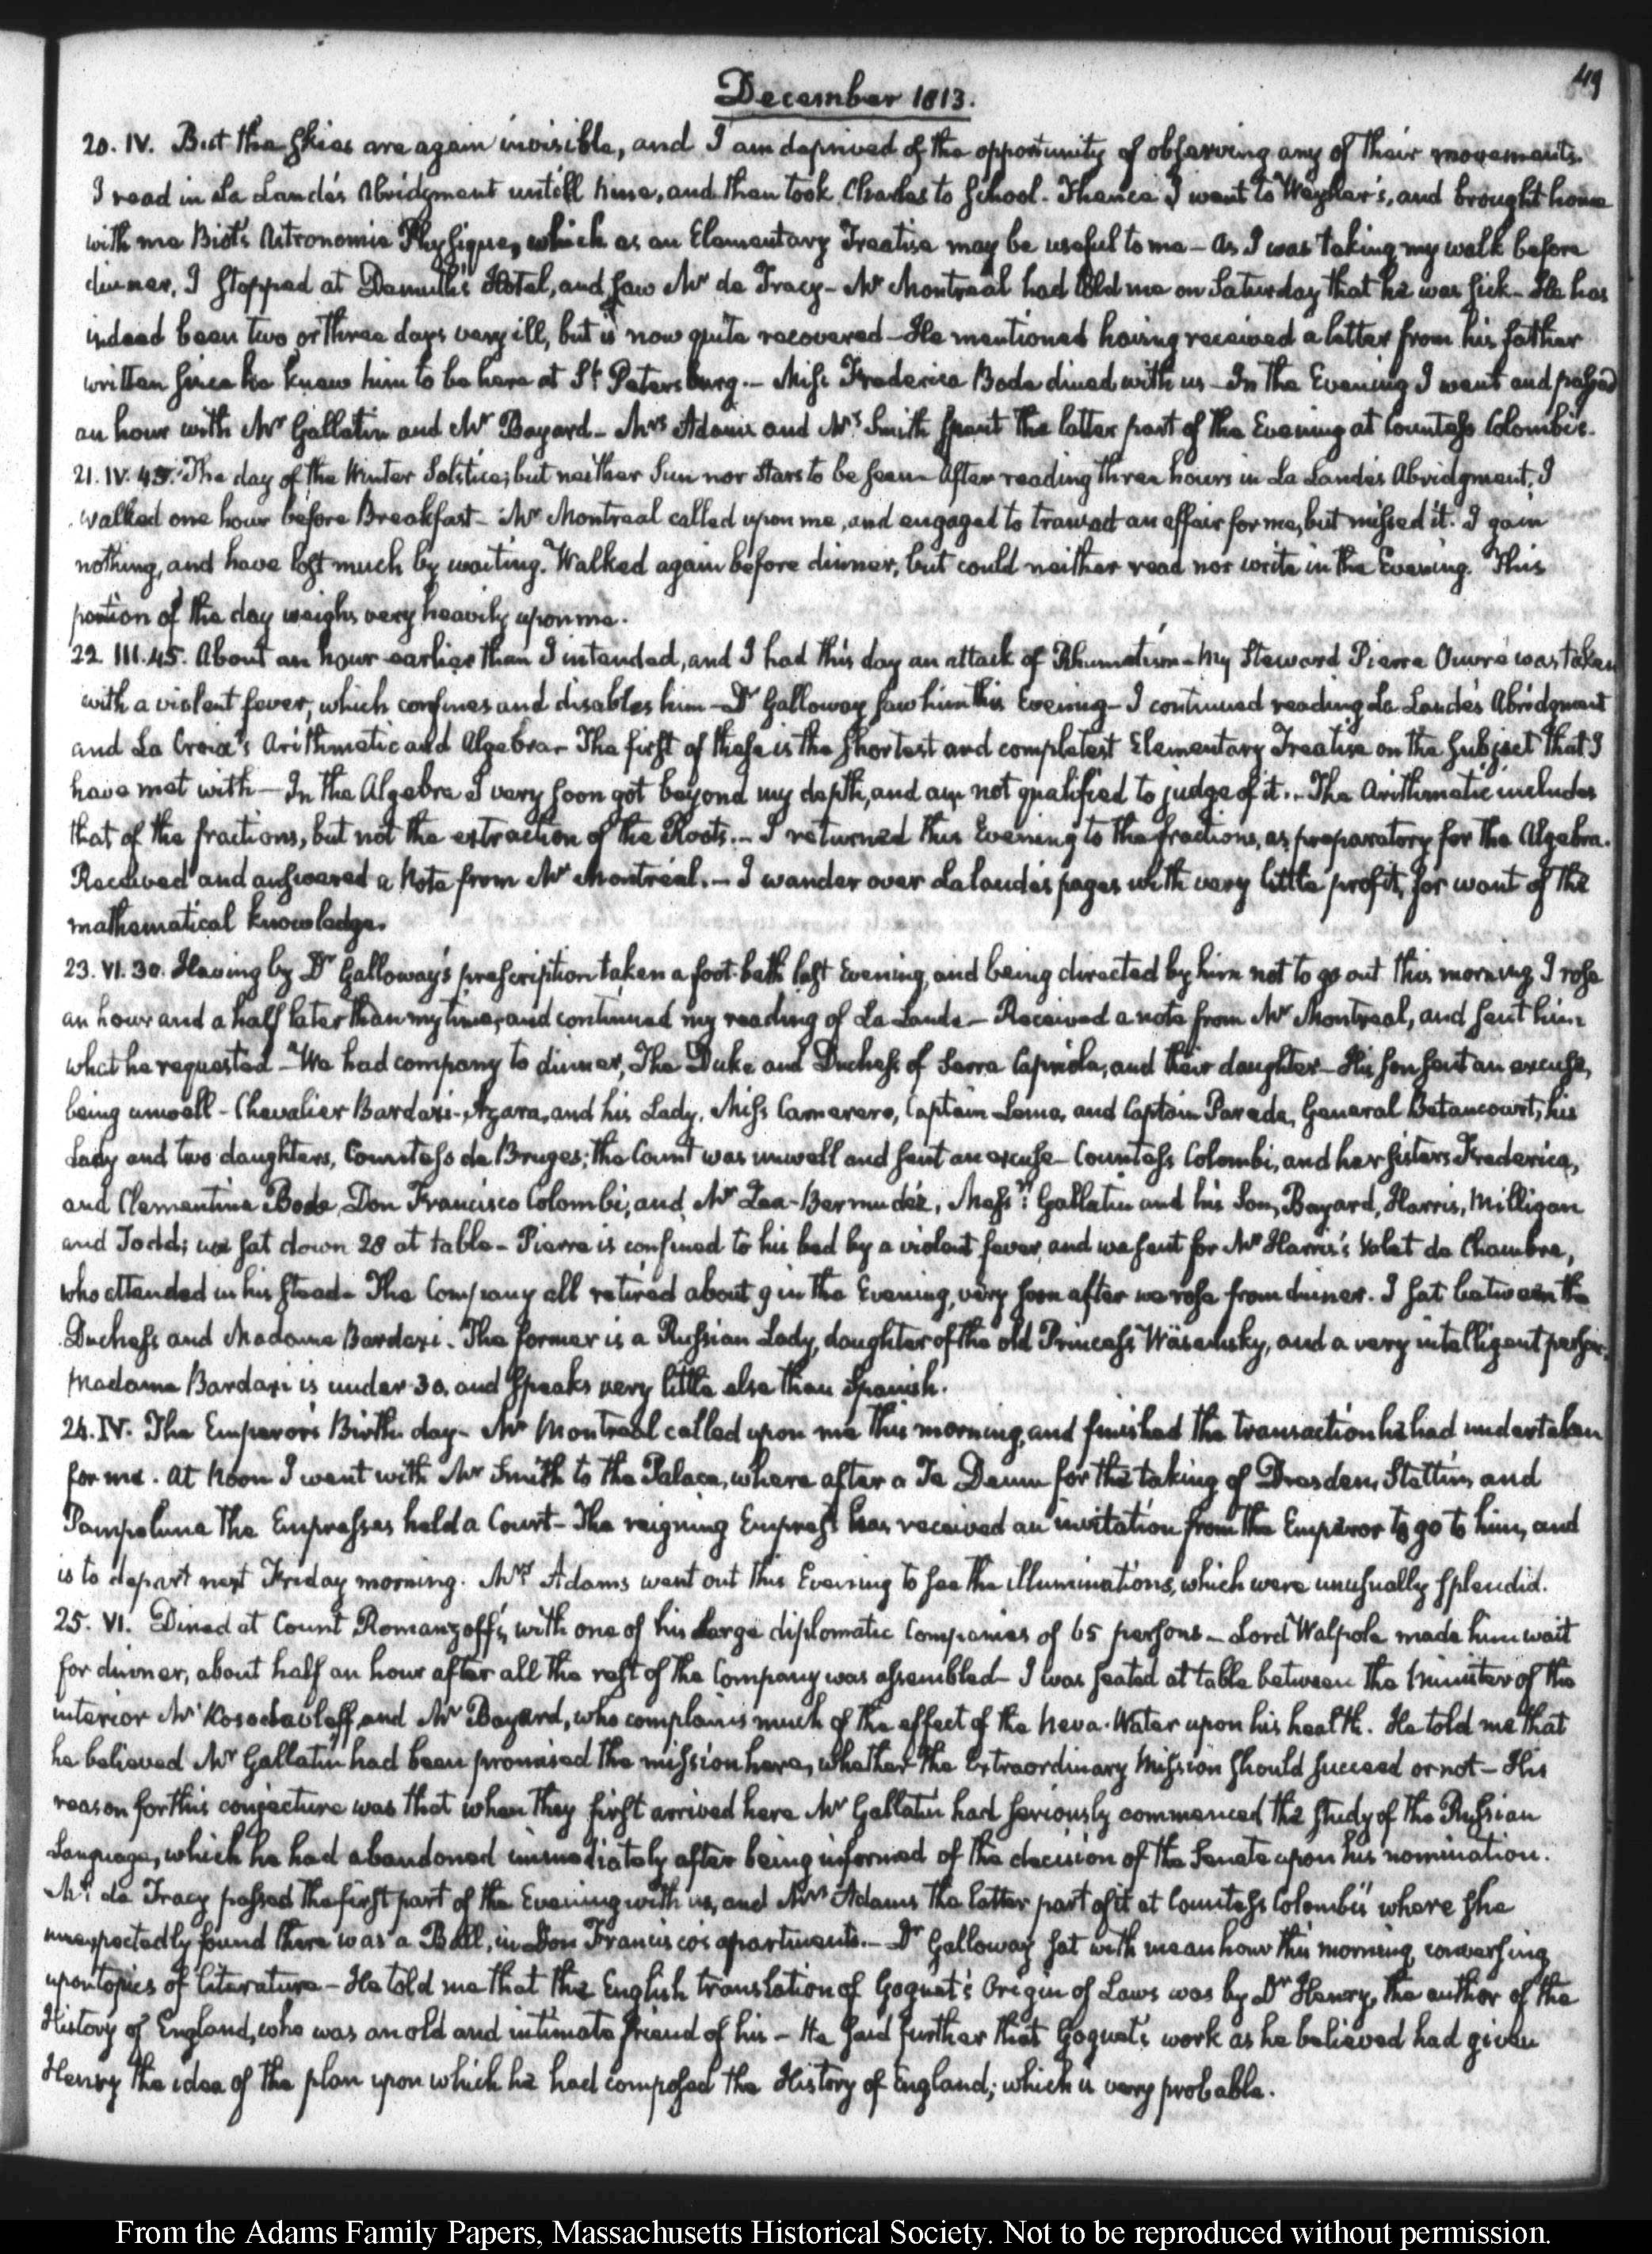 49
December 1813.
20. IV. But the skies are again invisible, and I am deprived of the opportunity of observing any of their movements.
I read in La Lande's Abridgment untill nine, and then took Charles to School. Thence I went to Weyher's, and brought home
with me Biot's Astronomie Physique, which as an Elementary Treatise may be useful to me — As I was taking my walk before
dinner, I stopped at Demuth's Hotel, and saw Mr de Tracy — Mr Montreal had told me on Saturday that he was sick — He has
indeed been two or three days very ill, but is now quite recovered — He mentioned having received a letter from his father
written since he knew him to be here at St. Petersburg. — Miss Frederica Bode dined with us — In the Evening I went and passed
an hour with Mr Gallatin and Mr Bayard — Mrs Adams and Mrs Smith spent the latter part of the Evening at Countess Colombi's.
21. IV. 45. The day of the Winter Solstice; but neither Sun nor Stars to be seen — After reading three hours in La Lande's Abridgment, I
walked one hour before Breakfast — Mr Montreal called upon me, and engaged to transact an affair for me, but missed it. I gain
nothing, and have lost much by waiting. Walked again before dinner, but could neither read nor write in the Evening. This
portion of the day weighs very heavily upon me.
22. III. 45. About an hour earlier than I intended, and I had this day an attack of Rhumatism — My Steward Pierre was taken
with a violent fever, which confines and disables him — Dr Galloway saw him this Evening — I continued reading La Lande's Abridgment
and La Croix's Arithmetic and Algebra — The first of these is the shortest and completest Elementary Treatise on the subject that I
have met with — In the Algebra I very soon got beyond my depth, and am not qualified to judge of it. — The Arithmetic includes
that of the fractions, but not the extraction of the Roots. — I returned this Evening to the fractions, as preparatory for the Algebra.
Received and answered a Note from Mr Montréal. — I wander over Lalande's pages with very little profit, for want of the
mathematical knowledge.
23. VI. 30. Having by Dr Galloway's prescription taken a foot-bath last Evening, and being directed by him not to go out this morning, I rose
an hour and a half later than my time, and continued my reading of La Lande — Received a note from Mr Montreal, and sent him
what he requested — We had company to dinner, The Duke and Duchess of Serra Capriola, and their daughter — His son sent an excuse,
being unwell — Chevalier Bardaxi-Azara, and his Lady. Miss Camerero, Captain Lema, and Captain Parada, General Betancourt, his
Lady and two daughters, Countess de Bruges; the Count was unwell and sent an excuse — Countess Colombi, and her sisters Frederica,
and Clementina Bode, Don Francisco Colombi, and Mr Zea-Bermudéz, Messrs. Gallatin and his Son, Bayard, Harris, Milligan
and Todd; we sat down 28 at table — Pierre is confined to his bed by a violent fever, and we sent for Mr Harris's Valet de Chambre,
who attended in his stead — The Company all retired about 9 in the Evening, very soon after we rose from dinner. I sat between the
Duchess and Madame Bardaxi. The former is a Russian Lady, daughter of the old Princess Wäsemsky, and a very intelligent person.
Madame Bardaxi is under 30, and speaks very little else than Spanish.
24. IV. The Emperor's Birth day — Mr Montreal called upon me this morning, and finished the transaction he had undertaken
for me. At Noon I went with Mr Smith to the Palace, where after a Te Deum for the taking of Dresden, Stettin, and
Pampeluna the Empresses held a Court — The reigning Empress has received an invitation from the Emperor to go to him, and
is to depart next Friday morning. Mrs Adams went out this Evening to see the illuminations, which were unusually splendid.
25. VI. Dined at Count Romanzoff's, with one of his large diplomatic Companies of 65 persons — Lord Walpole made him wait
for dinner, about half an hour after all the rest of the Company was assembled — I was seated at table between the Minister of the
interior Mr Kosodavleff, and Mr Bayard, who complains much of the effect of the Neva-Water upon his health. He told me that
he believed Mr Gallatin had been promised the mission here, whether the Extraordinary Mission should succeed or not — His
reason for this conjecture was that when they first arrived here Mr Gallatin had seriously commenced the study of the Russian
Language, which he had abandoned immediately after being informed of the decision of the Senate upon his nomination.
Mr. de Tracy passed the first part of the Evening with us, and Mrs Adams the latter part of it at Countess Colombi's where she
unexpectedly found there was a Ball, in Don Francisco's apartments. — Dr Galloway sat with me an hour this morning, conversing
upon topics of literature — He told me that the English translation of Goguet's Origin of Laws was by Dr Henry, the author of the
History of England, who was an old and intimate friend of his — He said further that Goguet's work as he believed had given
Henry the idea of the plan upon which he had composed the History of England; which is very probable.
From the Adams Family Papers, Massachusetts Historical Society. Not to be reproduced without permission.